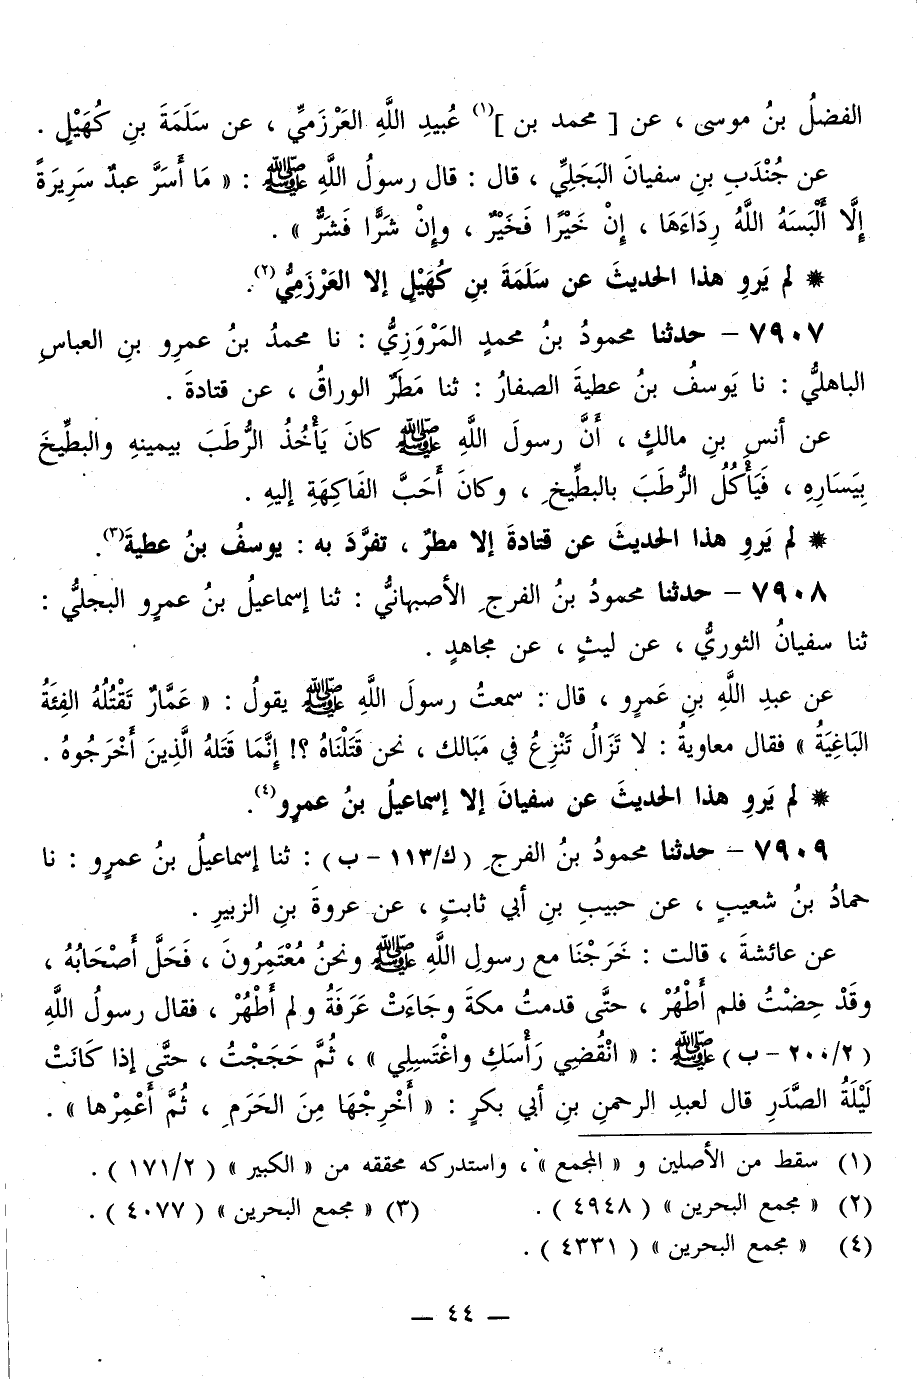 الفضلُ بنُ موسى ، عن [ محمد بن ]⁽¹⁾ عُبيدِ اللَّهِ العَرْزَميِّ ، عن سَلَمَةَ بنِ كُهَيْلٍ .
عن جُنْدَبِ بنِ سفيانَ البَجَليِّ ، قال : قال رسولُ اللَّهِ ﷺ : « مَا أَسَرَّ عبدٌ سَرِيرَةً
إِلَّا أَلْبَسَهُ اللَّهُ رِدَاءَهَا ، إِنْ خَيْرًا فَخَيْرٌ ، وإِنْ شَرًّا فَشَرٌّ » .
* لم يَروِ هذا الحديثَ عن سَلَمَةَ بنِ كُهَيْلٍ إلا العَرْزَمِيُّ⁽²⁾.
٧٩٠٧ – حدثنا محمودُ بنُ محمدٍ المَرْوَزِيُّ : نا محمدُ بنُ عمرِو بنِ العباسِ
الباهليُّ : نا يَوسفُ بنُ عطيةَ الصفارُ : ثنا مَطَرٌ الوراقُ ، عن قتادةَ .
عن أنسِ بنِ مالكٍ ، أَنَّ رسولَ اللَّهِ ﷺ كانَ يَأْخُذُ الرُّطَبَ بيمينهِ والبطِّيخَ
بِيَسَارِهِ ، فَيَأْكُلُ الرُّطَبَ بالبطِّيخِ ، وكانَ أَحَبَّ الفَاكِهَةِ إليهِ .
* لم يَروِ هذا الحديثَ عن قتادةَ إلا مطرٌ ، تفرَّدَ به : يوسفُ بنُ عطيةَ⁽³⁾.
٧٩٠٨ – حدثنا محمودُ بنُ الفرجِ الأصبهانيُّ : ثنا إسماعيلُ بنُ عمرٍو البجليُّ :
ثنا سفيانُ الثوريُّ ، عن ليثٍ ، عن مجاهدٍ .
عن عبدِ اللَّهِ بنِ عَمرٍو ، قال : سمعتُ رسولَ اللَّهِ ﷺ يقولُ : « عَمَّارٌ تَقْتُلُهُ الفِئَةُ
البَاغِيَةُ » فقال معاويةُ : لا تَزَالُ تَنْزِعُ في مَبَالك ، نحن قَتَلْنَاهُ ؟! إِنَّمَا قَتَلهُ الَّذِينَ أَخْرَجُوهُ .
* لم يَروِ هذا الحديثَ عن سفيانَ إلا إسماعيلُ بنُ عمرٍو⁽⁴⁾.
٧٩٠٩ – حدثنا محمودُ بنُ الفرجِ (ك/١١٣ – ب) : ثنا إسماعيلُ بنُ عمرٍو : نا
حمادُ بنُ شعيبٍ ، عن حبيبِ بنِ أبي ثابتٍ ، عن عروةَ بنِ الزبيرِ .
عن عائشةَ ، قالت : خَرَجْنَا مع رسولِ اللَّهِ ﷺ ونحنُ مُعْتَمِرُونَ ، فَحَلَّ أَصْحَابُهُ ،
وقَدْ حِضْتُ فلم أَطْهُرْ ، حتَّى قدمتُ مكةَ وجَاءَتْ عَرَفَةُ ولم أَطْهُرْ ، فقال رسولُ اللَّهِ
(٢/ ٢٠٠ – ب) ﷺ : « انْقُضِي رَأْسَكِ واغْتَسِلِي » ، ثُمَّ حَجَجْتُ ، حتَّى إذا كَانَتْ
لَيْلَةُ الصَّدَرِ قال لعبدِ الرحمنِ بنِ أبي بكرٍ : « أَخْرِجْهَا مِنَ الحَرَمِ ، ثُمَّ أَعْمِرْها » .
(١) سقط من الأصلين و « المجمع » ، واستدركه محققه من « الكبير » ( ٢/ ١٧١ ) .
(٢) « مجمع البحرين » ( ٤٩٤٨ ) . (٣) « مجمع البحرين » ( ٤٠٧٧ ) .
(٤) « مجمع البحرين » ( ٤٣٣١ ) .
— ٤٤ —